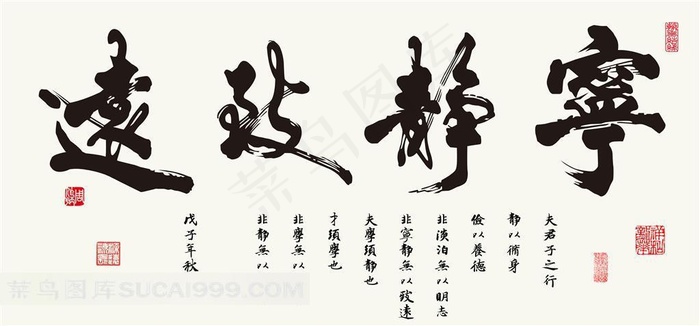 寧靜致遠
夫君子之行
靜以脩身
儉以養德
非淡泊無以明志
非寧靜無以致遠
夫學須靜也
才須學也
非學無以
非靜無以
戊子年秋
菜鸟图库
菜鸟图库SUCAI999.COM